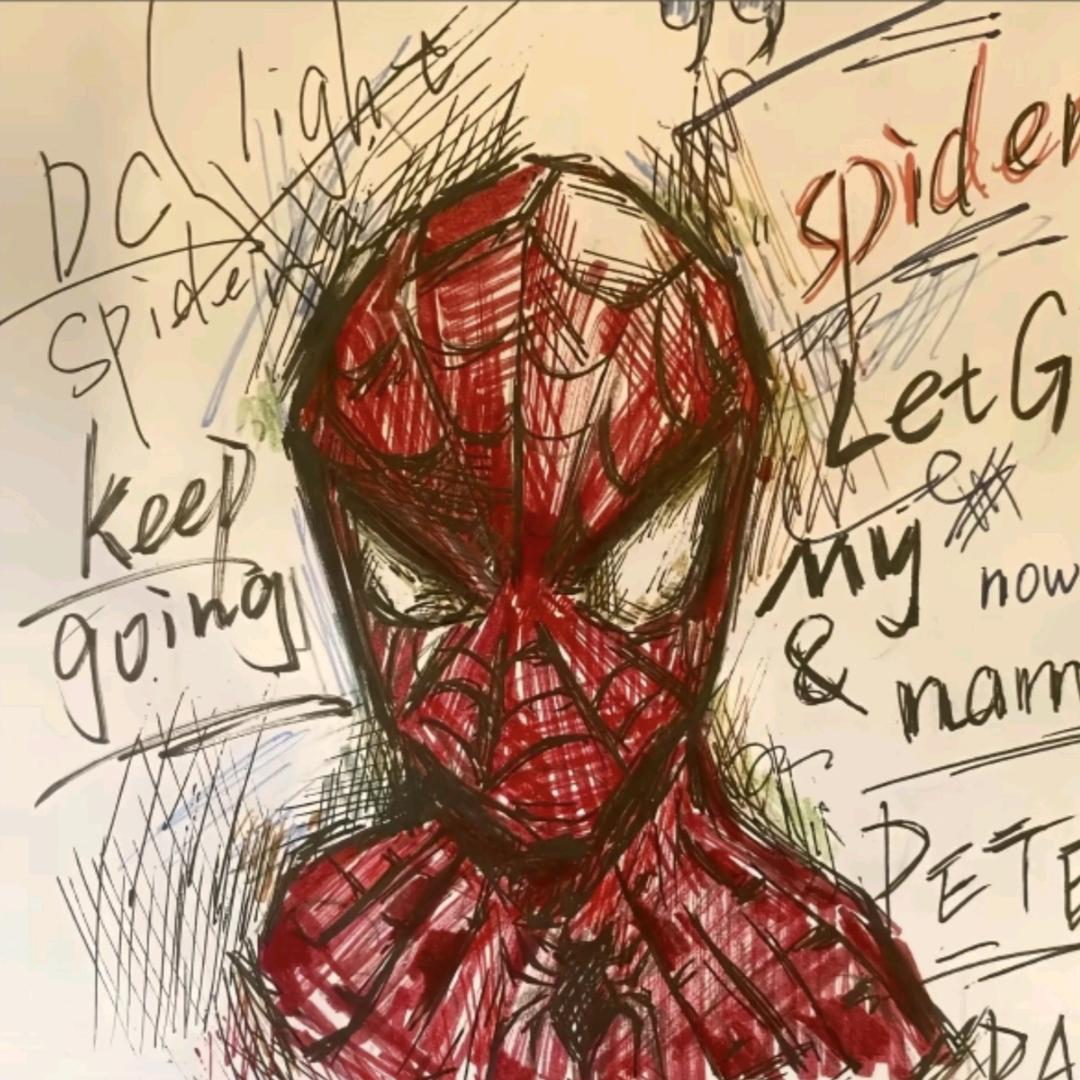 light
DC
spider
keep
going
spider
Let G
My
now
&
nam
PETE
PA